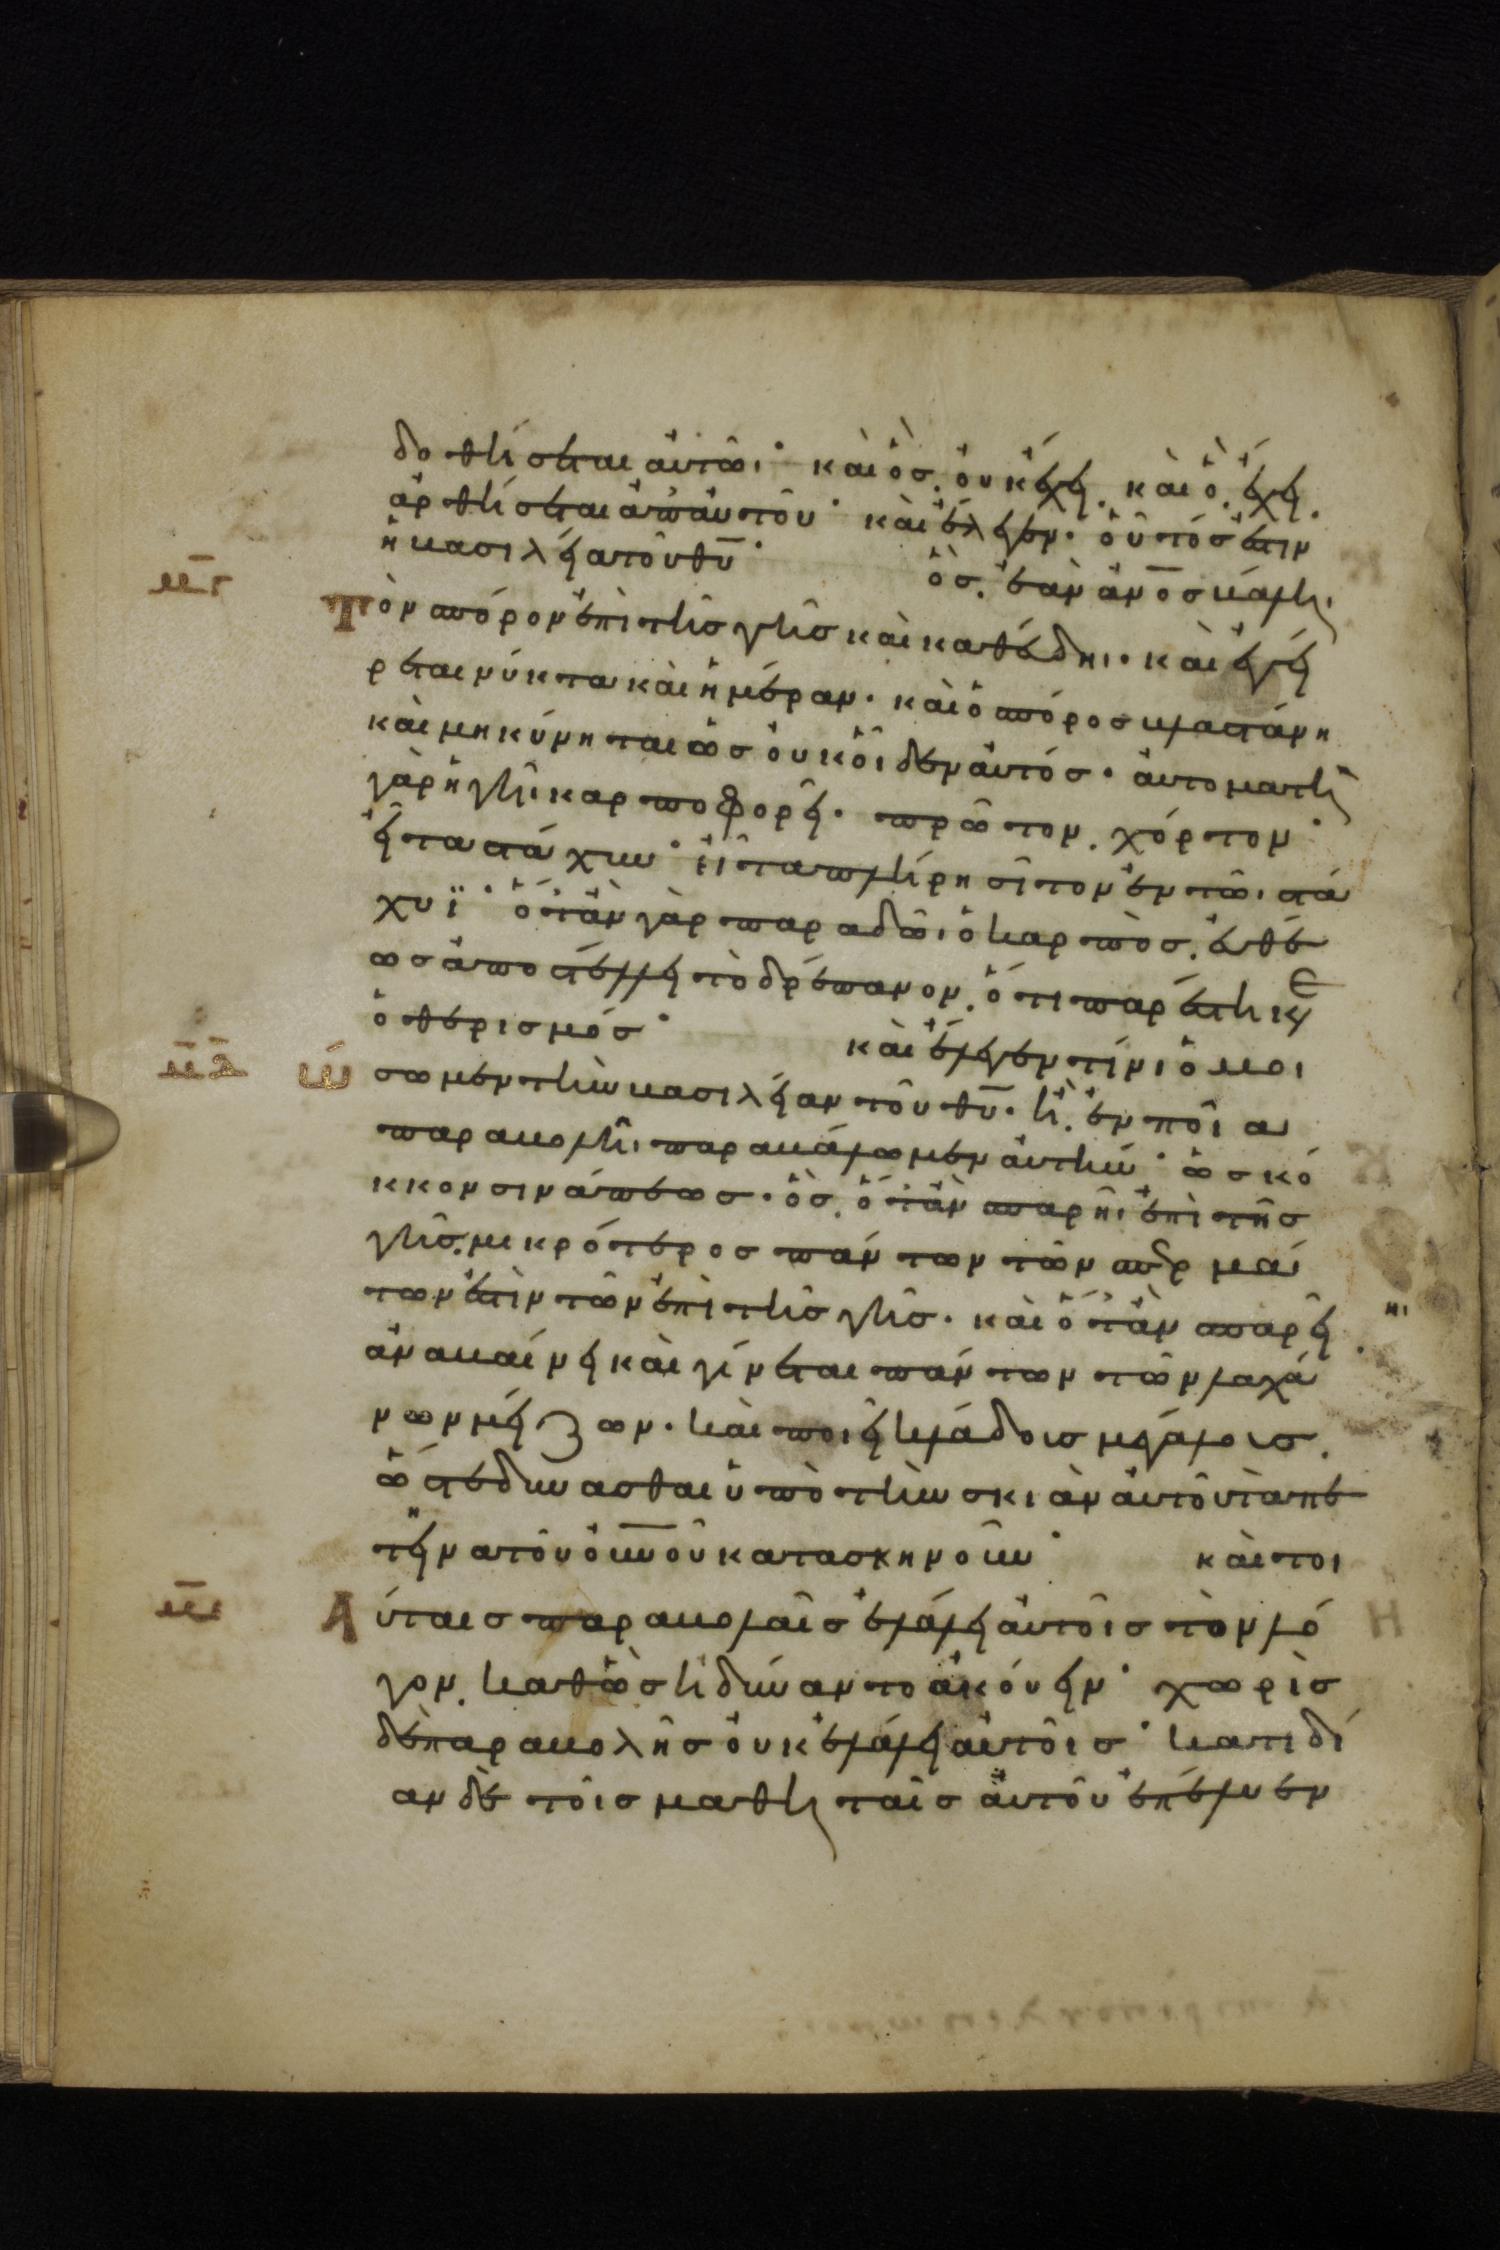 δοθήσεται αὐτῶι· καὶ ὃς οὐκ ἔχει. καὶ ὃ ἔχει.
ἀρθήσεται ἀπ᾽ αὐτοῦ· καὶ ἔλεγεν· οὗτός ἐστιν
ἡ βασιλεία τοῦ θ̅υ̅· ὃς ἐὰν ἀν̅ο̅ς βάλη
μ̅γ̅ Τὸν σπόρον ἐπὶ τῆς γῆς καὶ καθεύδηι· καὶ ἐγεί
ρεται νύκτα καὶ ἡμέραν· καὶ ὁ σπόρος βλαστάνη
καὶ μηκύνηται ὡς οὐκ οἶδεν αὐτός· αὐτοματὴ
γὰρ ἡ γῆ καρποφορεῖ· πρῶτον. χόρτον·
εἶτα στάχυν· εἶτα πλήρη σῖτον ἐν τῶι στά
χυϊ· ὅταν γὰρ παραδῶι ὁ καρπὸς. εὐθέ
ως ἀποστέλλει τὸ δρέπανον. ὅτι παρέστηκε
ὁ θερισμός· καὶ ἔλεγεν τίνι ὁμοι
μ̅δ̅ ώ σωμεν τὴν βασιλείαν τοῦ θ̅υ̅· ἢ. ἐν ποία
παραβολῆ παραβάλωμεν αὐτήν· ὡς κό
κκον σινάπεως· ὃς. ὅταν σπαρῆι ἐπὶ τῆς
γῆς. μικρότερος πάντων τῶν σπερμά
των ἐστὶν τῶν ἐπὶ τῆς γῆς· καὶ ὅταν σπαρεῖ. ηι
ἀναβαίνει καὶ γίνεται πάντων τῶν λαχά
νων μείζων· καὶ ποιεῖ κλάδοις μεγάλοις.
ὥστε δυνασθαι ὑπὸ τὴν σκιὰν αὐτοῦ τὰ πε
τεινὰ τοῦ ο̅υ̅ν̅οῦ κατασκηνοῦν· καὶ τοι
μ̅ε̅ Α ύταις παραβολαῖς ἐλάλει αὐτοῖς τὸν λό
γον. καθὼς ἠδύναντο ἀκούειν· χωρὶς
δὲ παραβολῆς οὐκ ἐλάλει αὐτοῖς· κατιδί
αν δὲ τοῖς μαθηταῖς αὐτοῦ ἐπέλυεν